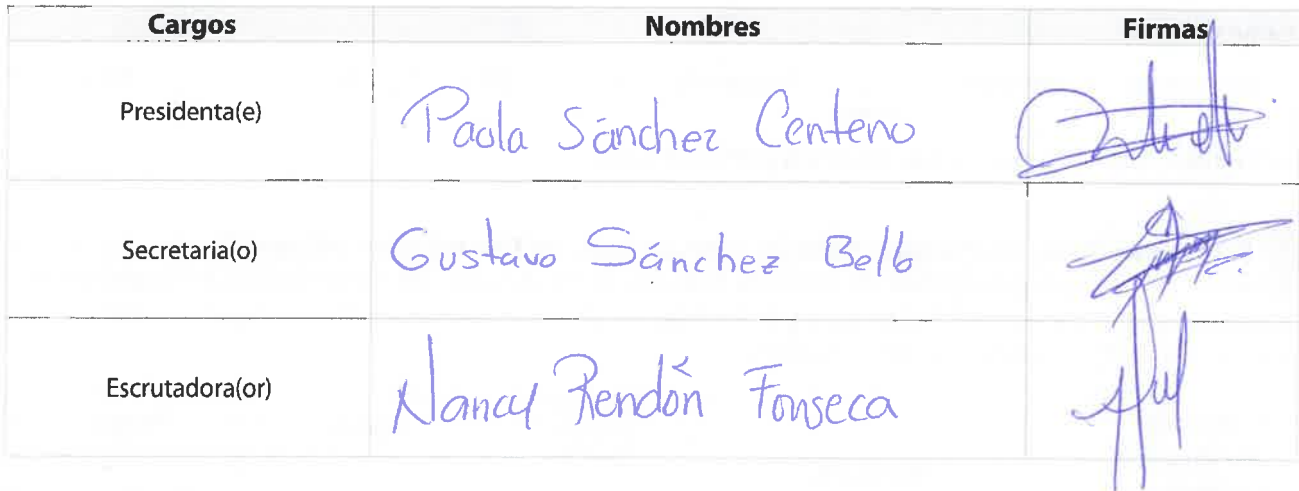 Cargos Nombres Firmas
Presidenta(e) Paola Sánchez Centeno
Secretaria(o) Gustavo Sánchez Bello
Escrutadora(or) Nancy Rendón Fonseca